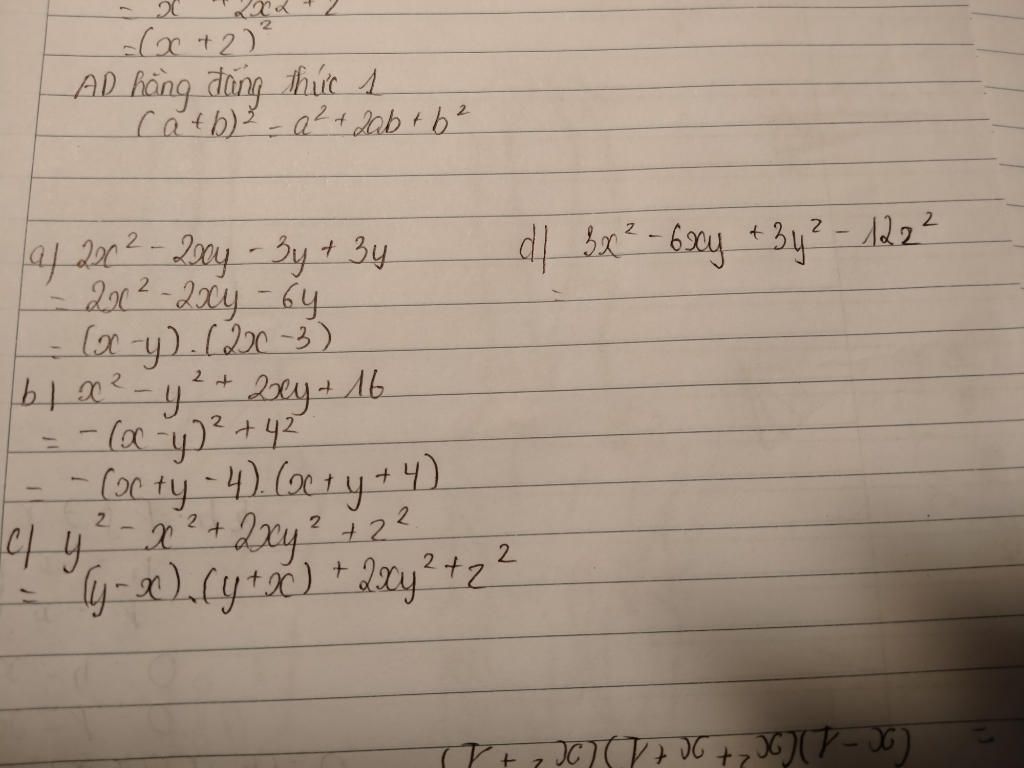 = x² + 2x2 + 2
= (x + 2)²
AD hằng đẳng thức 1
(a+b)² = a² + 2ab + b²
a) 2x² - 2xy - 3y + 3y
= 2x² - 2xy - 6y
= (x - y) . (2x - 3)
b) x² - y² + 2xy + 16
= -(x - y)² + 4²
= -(x + y - 4).(x + y + 4)
c) y² - x² + 2xy² + z²
= (y - x).(y + x) + 2xy² + z²
d) 3x² - 6xy + 3y² - 12z²
=
= (x - 1)(x² + x + 1)(x² + 1)